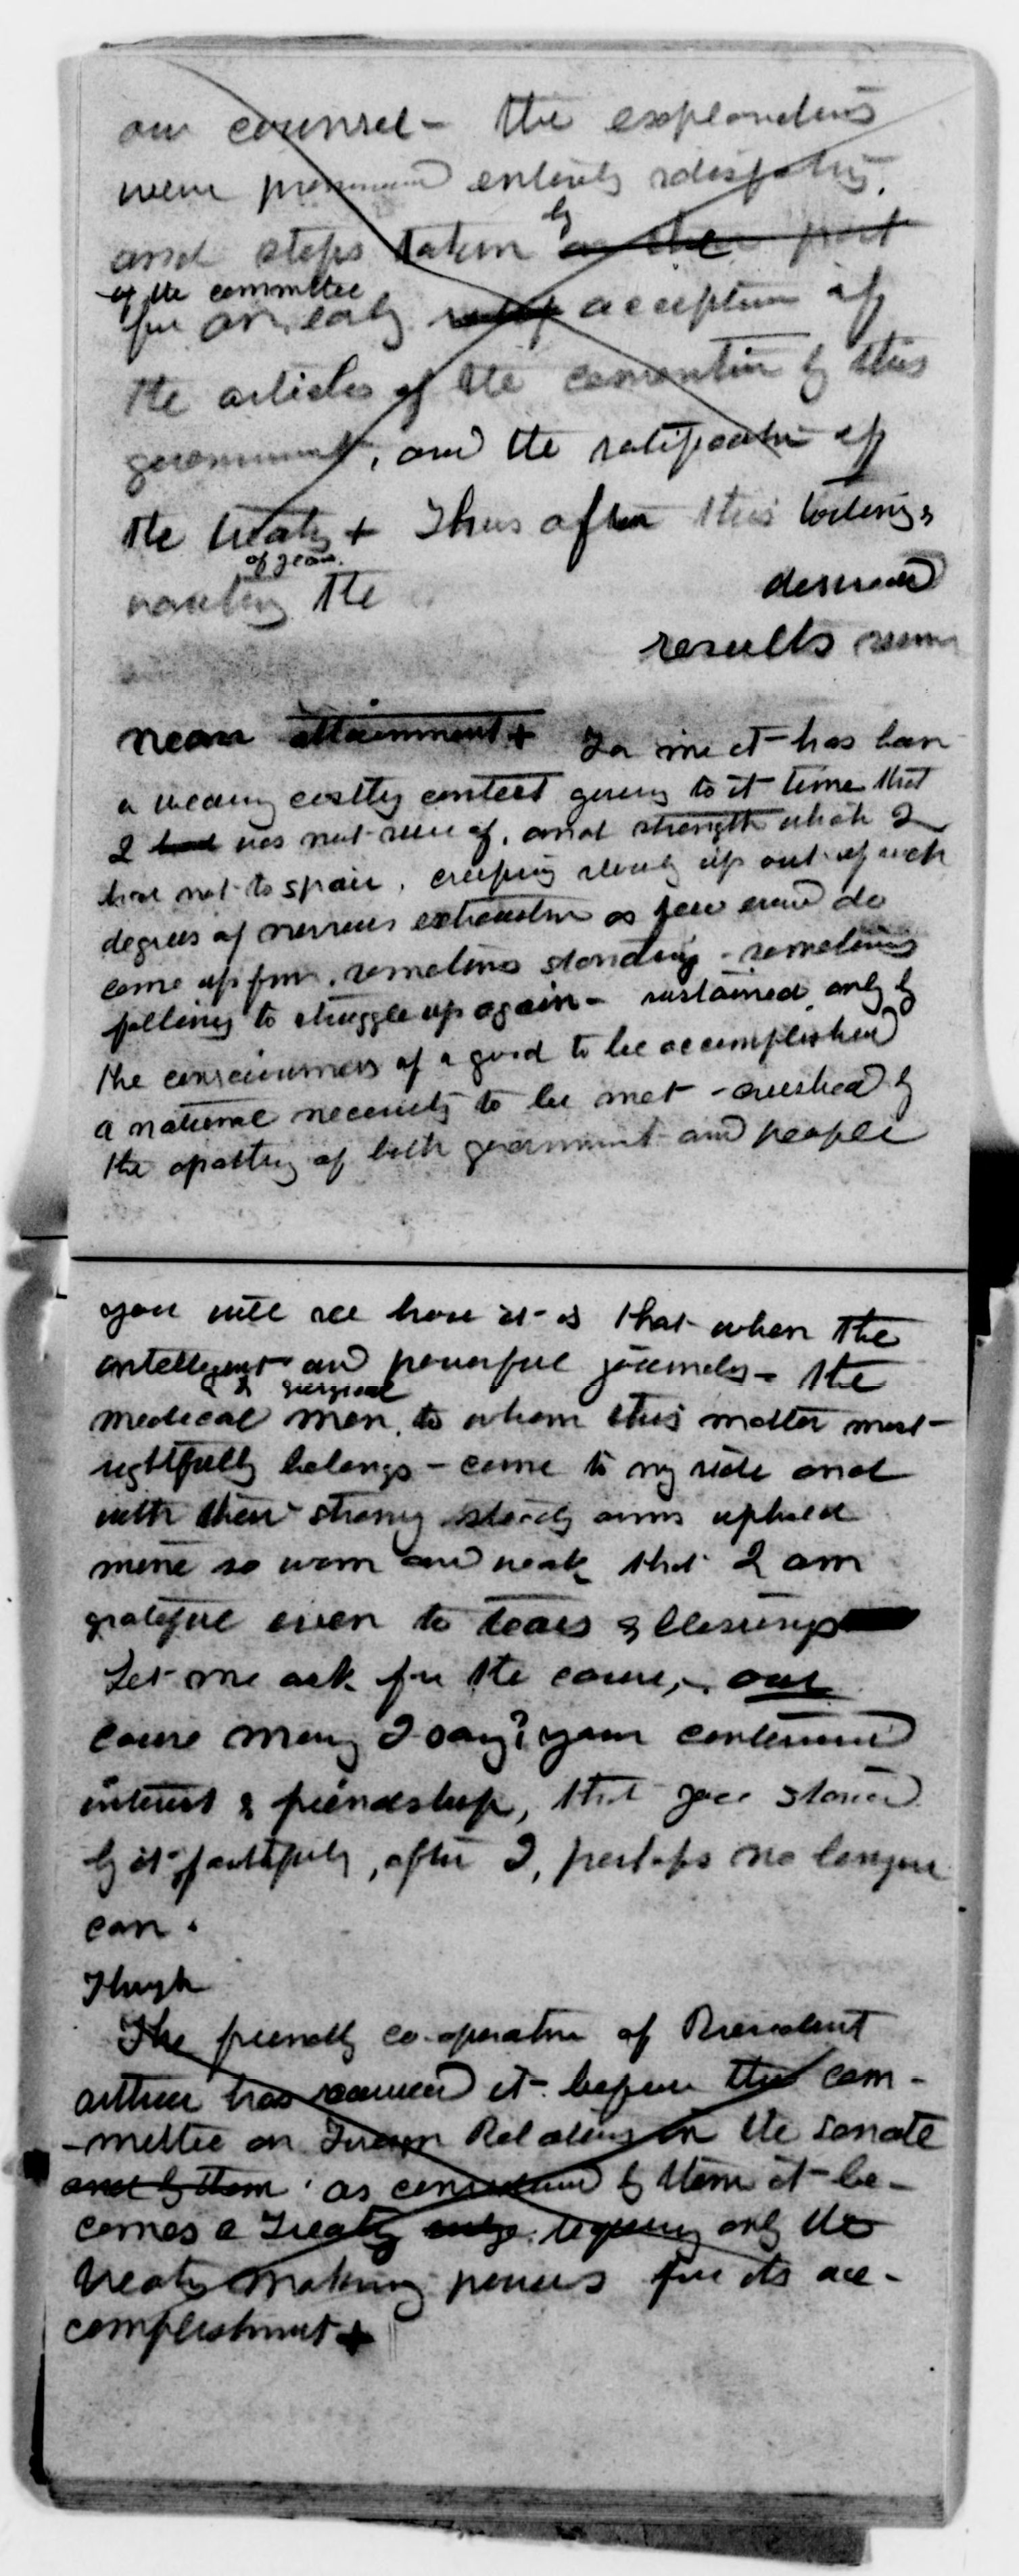 our counsel - the explanations
were pronounced entirely satisfactory,
and steps taken by on their part
of the committee
for an early acceptance of
the articles of the convention by this
government, and the ratification of
the treaty + Thus after this toiling
of years
the desired
results seem
near attainment + For me it has been
a weary costly contest giving to it time that
I had was not sure of, and strength which I
had not to spare, creeping slowly up out of such
degrees of nervous exhaustion as few ever do
come up from, sometimes standing - sometimes
falling to struggle up again - sustained only by
the consciousness of a good to be accomplished
a national necessity to be met - crushed by
the apathy of both government and people
you will see how it is that when the
intelligent and powerful journals - the
& surgical
medical men, to whom this matter most
rightfully belongs - come to my side and
with their strong steady arms uphold
mine so worn and weak that I am
grateful even to tears & blessings
Let me ask for the cause, - our
cause may I say? your continued
interest & friendship, that you stand
by it faithfully, after I, perhaps no longer
can.
Though
The friendly co-operation of President
Arthur has it before the com-
-mittee on Foreign Relations in the Senate
and by them as considered by them it be-
comes a Treaty requiring only the
treaty making powers for its ac-
complishment +